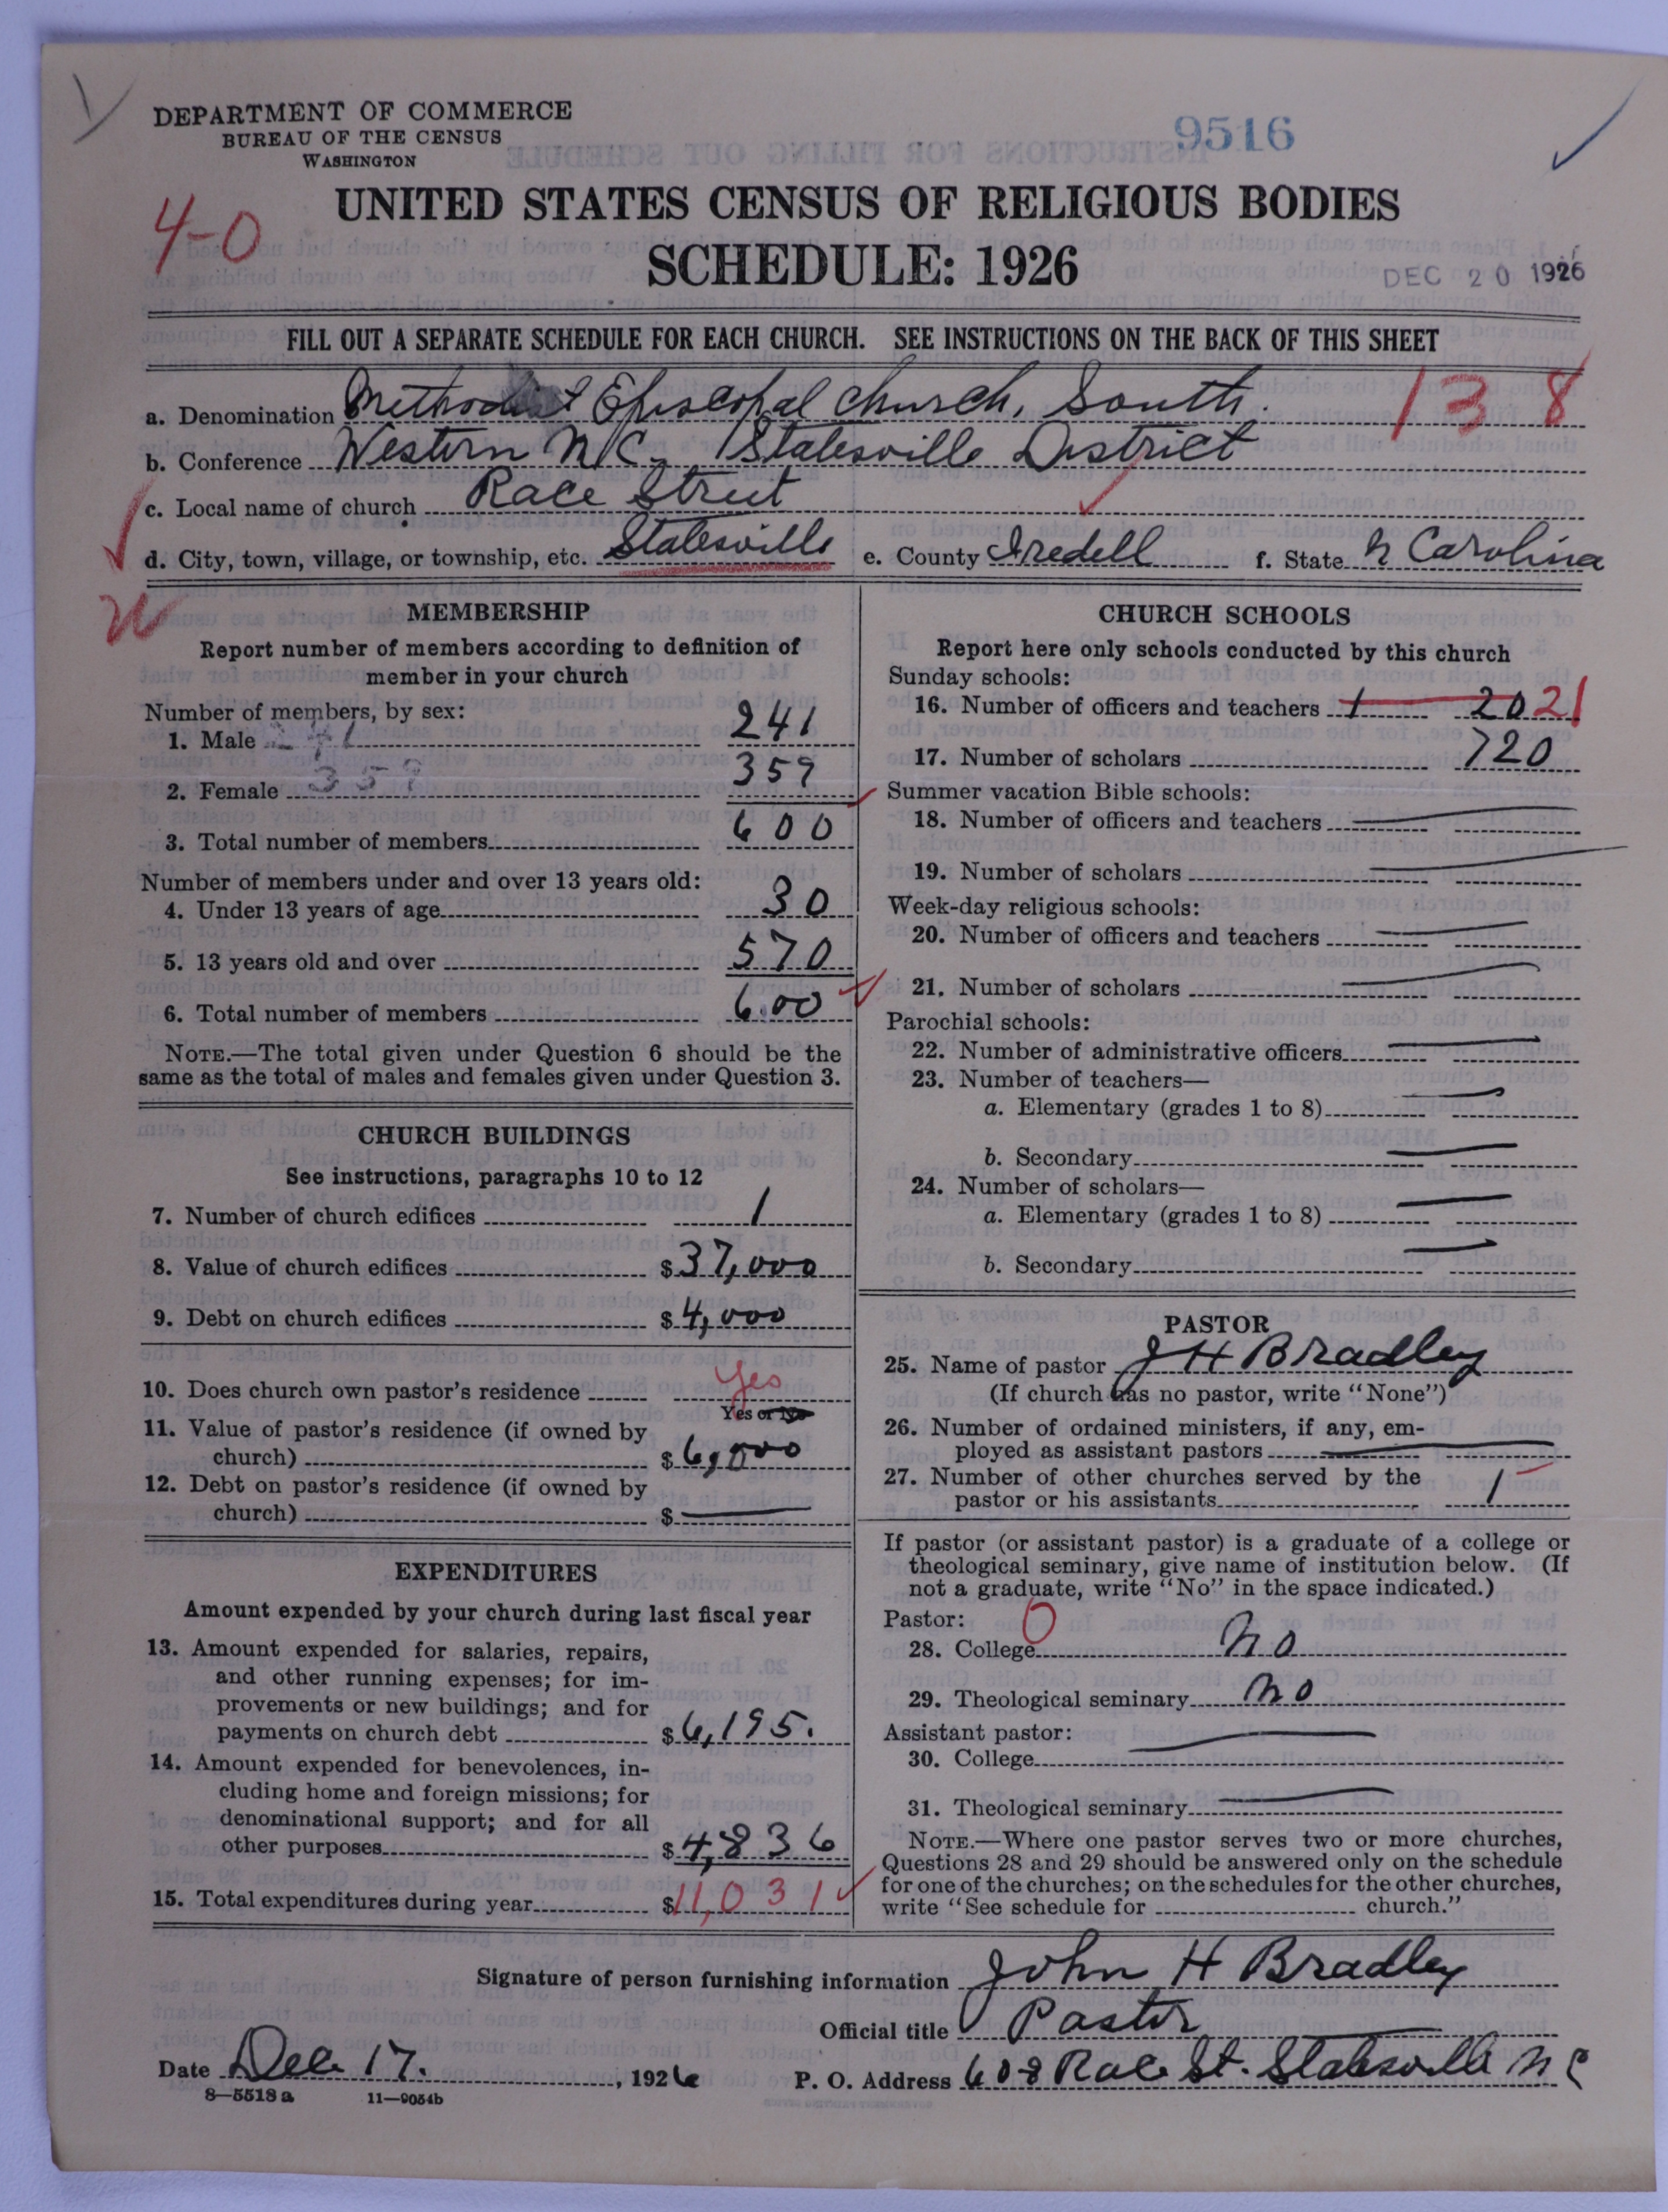 DEPARTMENT OF COMMERCE
BUREAU OF THE CENSUS
WASHINGTON
9516
4-0
UNITED STATES CENSUS OF RELIGIOUS BODIES
SCHEDULE: 1926
DEC 20 1926
FILL OUT A SEPARATE SCHEDULE FOR EACH CHURCH. SEE INSTRUCTIONS ON THE BACK OF THIS SHEET
138
a. Denomination Methodist Episcopal Church, South.
b. Conference Western N.C. Statesville District
c. Local name of church Race Street
d. City, town, village, or township, etc. Statesville e. County Iredell f. State N Carolina
MEMBERSHIP
Report number of members according to definition of
member in your church
Number of members, by sex:
1. Male 241 241
2. Female 359 359
3. Total number of members 600
Number of members under and over 13 years old:
4. Under 13 years of age 30
5. 13 years old and over 570
6. Total number of members 600
NOTE.—The total given under Question 6 should be the
same as the total of males and females given under Question 3.
CHURCH BUILDINGS
See instructions, paragraphs 10 to 12
7. Number of church edifices 1
8. Value of church edifices $37,000
9. Debt on church edifices $4,000
10. Does church own pastor's residence Yes
Yes or No
11. Value of pastor's residence (if owned by
church) $6,000
12. Debt on pastor's residence (if owned by
church) $
EXPENDITURES
Amount expended by your church during last fiscal year
13. Amount expended for salaries, repairs,
and other running expenses; for im-
provements or new buildings; and for
payments on church debt $6,195.
14. Amount expended for benevolences, in-
cluding home and foreign missions; for
denominational support; and for all
other purposes $4,836
15. Total expenditures during year $11,031
CHURCH SCHOOLS
Report here only schools conducted by this church
Sunday schools:
16. Number of officers and teachers 1 20 21
17. Number of scholars 720
Summer vacation Bible schools:
18. Number of officers and teachers
19. Number of scholars
Week-day religious schools:
20. Number of officers and teachers
21. Number of scholars
Parochial schools:
22. Number of administrative officers
23. Number of teachers—
a. Elementary (grades 1 to 8)
b. Secondary
24. Number of scholars—
a. Elementary (grades 1 to 8)
b. Secondary
PASTOR
25. Name of pastor J H Bradley
(If church has no pastor, write "None")
26. Number of ordained ministers, if any, em-
ployed as assistant pastors
27. Number of other churches served by the
pastor or his assistants 1
If pastor (or assistant pastor) is a graduate of a college or
theological seminary, give name of institution below. (If
not a graduate, write "No" in the space indicated.)
Pastor: 0
28. College No
29. Theological seminary No
Assistant pastor:
30. College
31. Theological seminary
NOTE.—Where one pastor serves two or more churches,
Questions 28 and 29 should be answered only on the schedule
for one of the churches; on the schedules for the other churches,
write "See schedule for church."
Signature of person furnishing information John H Bradley
Official title Pastor
Date Dec 17., 1926 P. O. Address 608 Race St. Statesville N C
8—5518 a 11—9054b